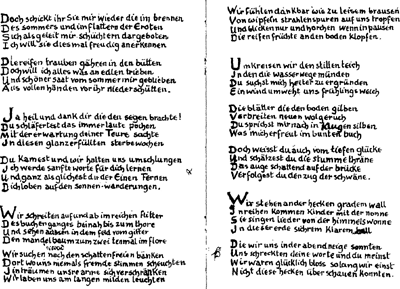 Doch schickt ihr Sie mir wieder die im brennen
Des sommers und im flattern der Eroten
Sich als geleit mir schüchtern dargeboten
Ich will sie diesmal freudig anerkennen
Die reifen trauben gähren in den bütten
Doch will ich alles was an edlen trieben
Und schöner saat vom sommer mir geblieben
Aus vollen händen vor ihr niederschütten.
Ja heil und dank dir die den segen brachte!
Du schläfertest das immer laute pochen
Mit der erwartung deiner Teure sachte
In diesen glanzerfüllten sterbewochen
Du kamest und wir halten uns umschlungen
Ich werde sanfte worte für dich lernen
Und ganz als glichest du der Einen Fernen
Dich loben auf den sonnen-wanderungen.
Wir schreiten auf und ab im reichen flitter
Des buchenganges beinah bis zum thore
Und sehen aussen in dem feld vom gitter
Den mandelbaum zum zweitenmal im flore
Wir suchen nach den schattenfreien bänken
Dort wo uns niemals fremde stimmen scheuchten
In träumen unsre arme sich verschränken
Wir laben uns am langen milden leuchten
Wir fühlen dankbar wie zu leisem brausen
Von wipfeln strahlenspuren auf uns tropfen
Und blicken nur und horchen wenn in pausen
Die reifen früchte an den boden klopfen.
Umkreisen wir den stillen teich
In den die wasserwege münden
Du suchst mich heiter zu ergründen
Ein wind umweht uns frühlingsweich
Die blätter die den boden gilben
Verbreiten neuen wolgeruch
Du sprichst mir nach in klugen silben
Was mich erfreut im bunten buch
Doch weisst du auch vom tiefen glücke
Und schätzest du die stumme thräne
Das auge schattend auf der brücke
Verfolgest du den zug der schwäne.
Wir stehen an der hecken gradem wall
In reihen kommen kinder mit der nonne
Sie singen lieder von der himmelswonne
In dieser erde sichrem klarem hall
Die wir uns in der abendneige sonnten
Uns schreckten deine worte und du meinst
Wir waren glücklich bloss solang wir einst
Nicht diese hecken überschauen konnten.